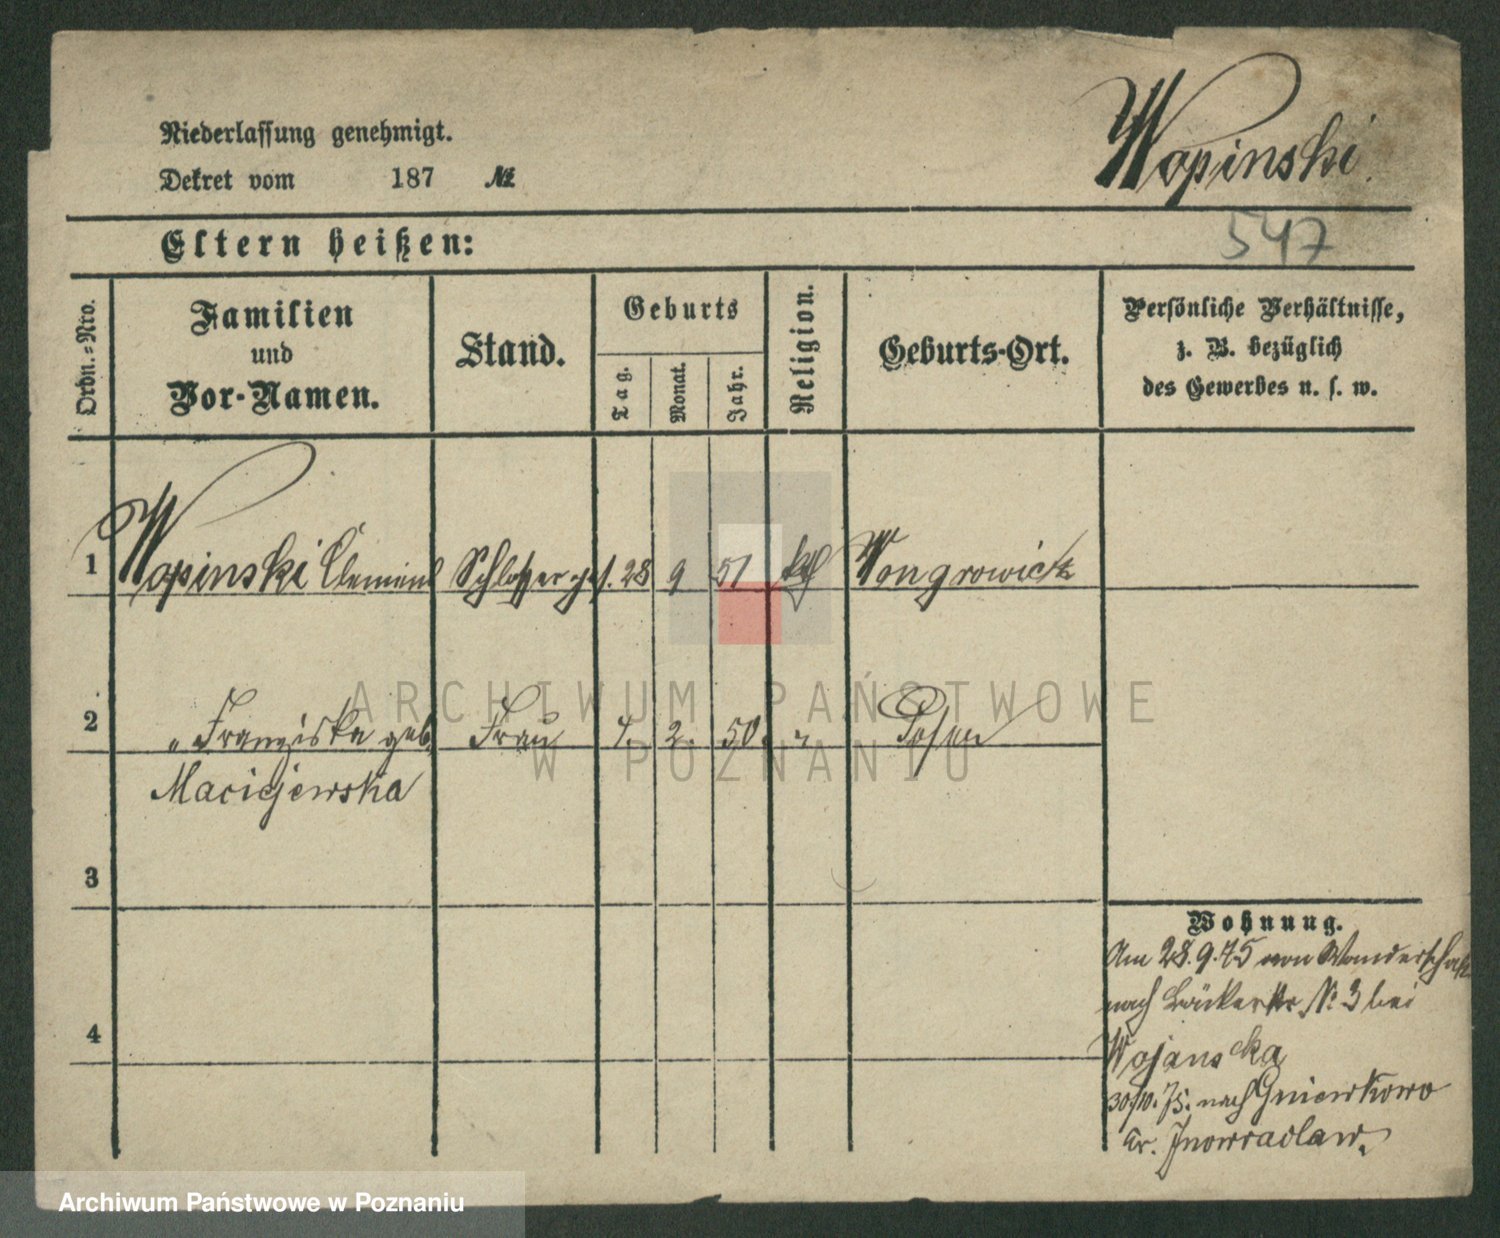 Wopinski
Niederlassung genehmigt.
Dekret vom 187 №
547
Eltern heißen:
Ordn.=Nro.
Familien
und
Vor-Namen.
Stand.
Geburts
Tag.
Monat.
Jahr.
Religion.
Geburts-Ort.
Persönliche Verhältnisse,
z. B. bezüglich
des Gewerbes u. s. w.
1 Wopinski Clemens Schlosserges. 28 9 51 kth Wongrowictz
2 " Franziska geb. Frau 4. 2. 50. " Posen
Maciejewska
3
4
Wohnung.
Am 28.9.75 von Wanderschaft
nach Bäckerstr № 3 bei
Wojanska
30/10.75. nach Gniewkowo
Kr. Inowraclaw.
ARCHIWUM PAŃSTWOWE
W POZNANIU
Archiwum Państwowe w Poznaniu